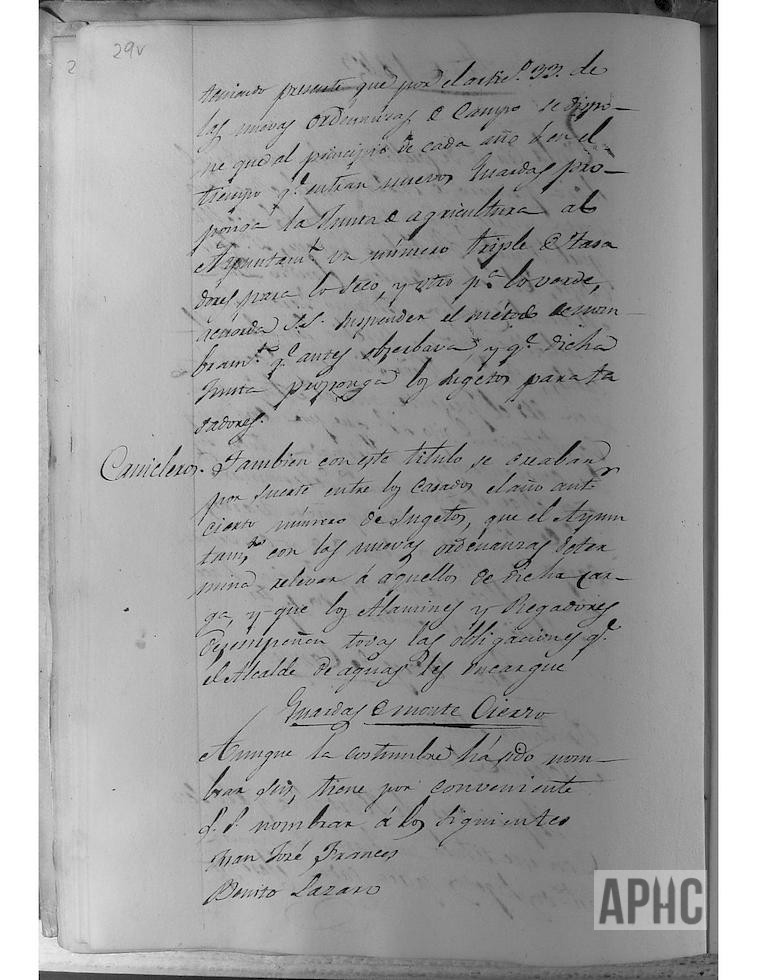 29v
2
teniendo presente que por el artic.º 33. de
las nuevas ordenanzas de Campo se dispo-
ne que al principio de cada año ó en el
tiempo q.e entran nuevos Guardas pro-
ponga la Junta de agricultura al
Ayuntam.to un número triple de tasa
dores para lo seco, y otro p.a lo verde,
acuerda S.S. suspender el metodo de nom-
bram.to q.e antes obserbava, y q.e dicha
Junta proponga los sugetos para ta
sadores.
Caniclero. Tambien con este titulo se creaban
por suerte entre los casados el año ant.r
cierto número de sugetos, que el Ayun
tam.to con las nuevas ordenanzas deter
mina relevar á aquellos de dicha car-
ga, y que los Alamines y Regadores
desempeñen todas las obligaciones q.e
el Alcalde de aguas les encargue
Guardas de monte Cierzo
Aunque la costumbre há sido nom-
brar seis, tiene por conveniente
S.S. nombrar á los siguientes
Juan José Frances
Benito Lazaro
APHC